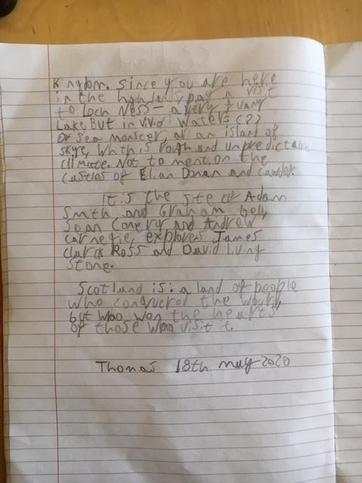 Kngdom. Since you are here
in the highlands, pay a visit
to Loch Ness - a very
Lake. But in waters (?)
of sea monster, or an island of
skye, which is rough and unpredictable
climate. Not to mention the
castles of Elian Donan and
It.is the site of Adam
Smith and Graham bell,
Sean Conery and Andrew
carnegie, explores James
clark Ross and David living
stone.
Scotland is: a land of people
who conquered the world,
but who won the hearts
of those who visit t.
Thomas 18th may 2020